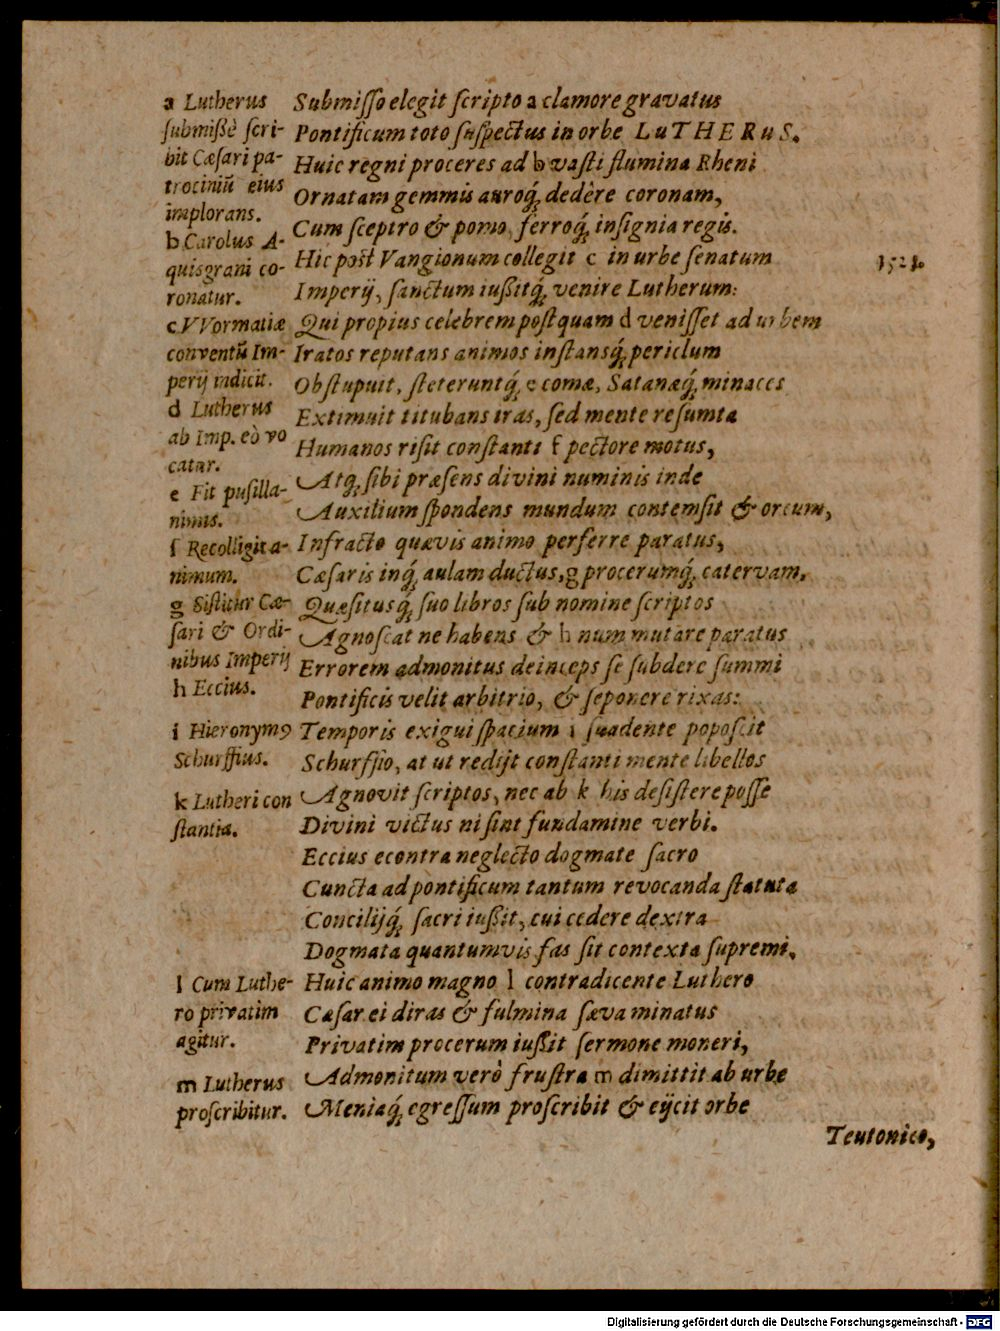 a Lutherus
submißè scri-
bit Cæsari pa-
trociniũ eius
implorans.
b Carolus A-
quisgrani co-
ronatur.
c VVormatiæ
conventũ Im-
perij indicit.
d Lutherus
ab Imp. eò vo
catur.
e Fit pusilla-
nimis.
f Recolligit a-
nimum.
g Sistitur Cæ-
sari & Ordi-
nibus Imperij
h Eccius.
i Hieronymꝰ
Schurffius.
k Lutheri con
stantia.
l Cum Luthe-
ro privatim
agitur.
m Lutherus
proscribitur.
Submisso elegit scripto a clamore gravatus
Pontificum toto suspectus in orbe LuTHERuS.
Huic regni proceres ad b vasti flumina Rheni
Ornatam gemmis auroq́; dedêre coronam,
Cum sceptro & pomo, ferroq́; insignia regis.
Hic post Vangionum collegit c in urbe senatum
1521.
Imperij, sanctum iußitq́; venire Lutherum:
Qui propius celebrem postquam d venisset ad urbem
Iratos reputans animos instansq́; periclum
Obstupuit, steteruntq́; e comæ, Satanæq́; minaces
Extimuit titubans iras, sed mente resumta
Humanos risit constanti f pectore motus,
Atq; sibi præsens divini numinis inde
Auxilium spondens mundum contemsit & orcum,
Infracto quævis animo perferre paratus,
Cæsaris inq́; aulam ductus, g procerumq́; catervam,
Quæsitusq́; suo libros sub nomine scriptos
Agnoscat ne habens & h num mutare paratus
Errorem admonitus deinceps se subdere summi
Pontificis velit arbitrio, & seponere rixas:
Temporis exigui spacium i suadente poposcit
Schurffio, at ut redijt constanti mente libellos
Agnovit scriptos, nec ab k his desistere posse
Divini victus ni sint fundamine verbi.
Eccius econtra neglecto dogmate sacro
Cuncta ad pontificum tantum revocanda statuta
Concilijq́; sacri iußit, cui cedere dextra
Dogmata quantumvis fas sit contexta supremi.
Huic animo magno l contradicente Luthero
Cæsar ei diras & fulmina sæva minatus
Privatim procerum iußit sermone moneri,
Admonitum verò frustra m dimittit ab urbe
Meniaq́; egressum proscribit & eijcit orbe
Teutonico,
Digitalisierung gefördert durch die Deutsche Forschungsgemeinschaft - DFG